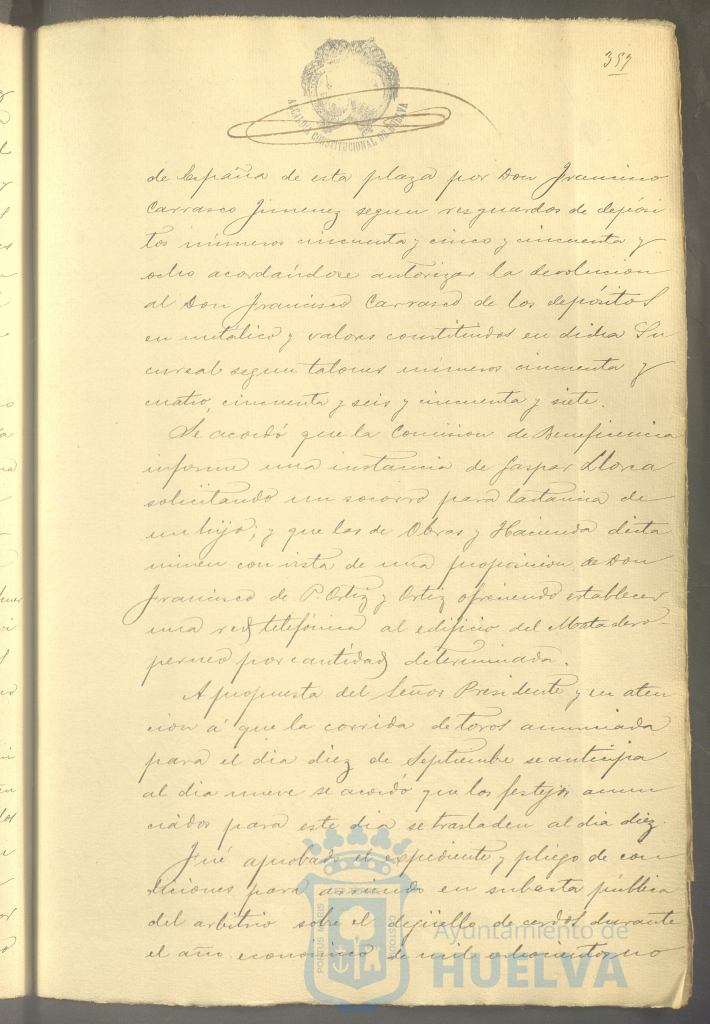 357
ALCALDIA CONSTITUCIONAL DE HUELVA
de España de esta plaza por Don Francisco
Carrasco Jimenez segun resguardos de depósi
tos números cincuenta y cinco y cincuenta y
ocho acordándose autorizar la devolucion
al Don Francisco Carrasco de los depósitos
en metálico y valores constituidos en dicha Su
cursal segun talones números cincuenta y
cuatro, cincuenta y seis y cincuenta y siete.
Se acordó que la Comision de Beneficencia
informe una instancia de Gaspar Llorca
solicitando un socorro para lactancia de
un hijo; y que las de Obras y Hacienda dicta
minen con vista de una proposicion de Don
Francisco de P. Ortiz y Ortiz ofreciendo establecer
una red telefónica al edificio del Matadero
por cantidad determinada.
A propuesta del Señor Presidente y en aten
cion á que la corrida de toros anunciada
para el dia diez de Septiembre se anticipa
al dia nueve se acordó que los festejos anun
ciados para este dia se trasladen al dia diez.
Fué aprobado el expediente y pliego de con
diciones para arriendo en subasta pública
del arbitrio sobre el degüello de cerdos durante
el año economico de mil ochocientos no
PORTUS MARIS ET TERRAE CUSTODIA
Ayuntamiento de
HUELVA